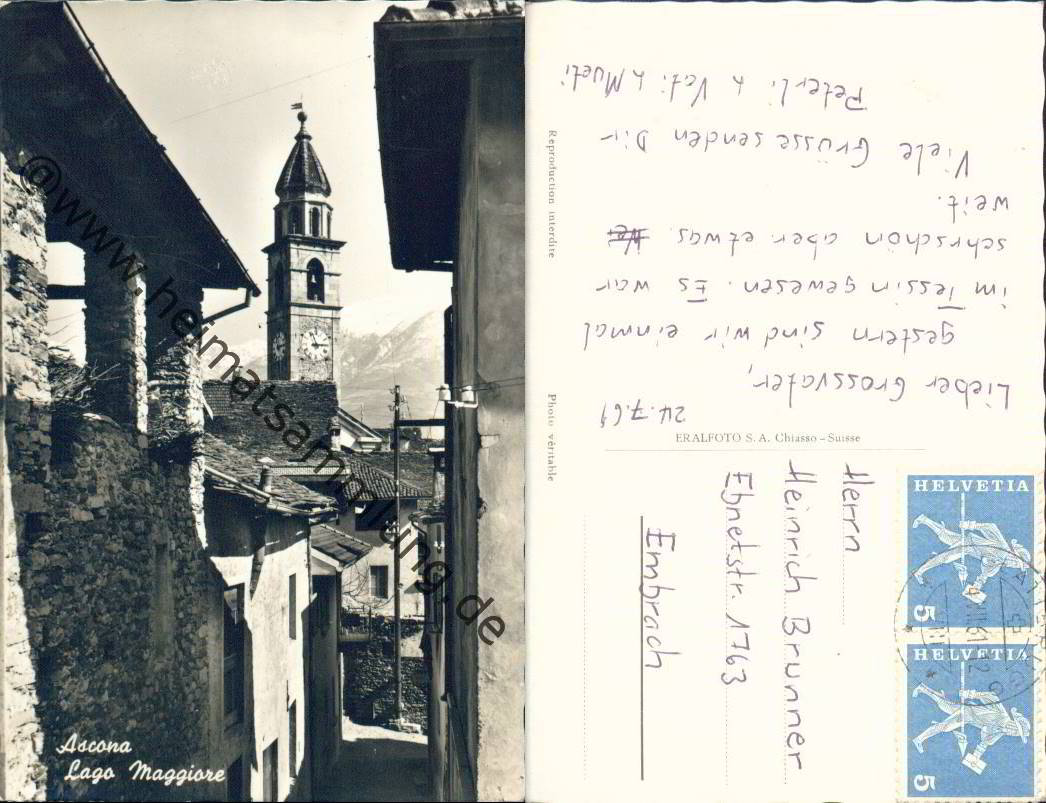 @www.heimatsammlung.de
Ascona
Lago Maggiore
Reproduction interdite
Photo véritable
24.7.61
Lieber Grossvater,
gestern sind wir einmal
im Tessin gewesen. Es war
sehrschön aber etwas
weit.
Viele Grüsse senden Dir
Peterli & Vati & Mueti
ERALFOTO S. A. Chiasso - Suisse
Herrn
Heinrich Brunner
Ebnetstr. 1763
Embrach
HELVETIA
5
HELVETIA
5